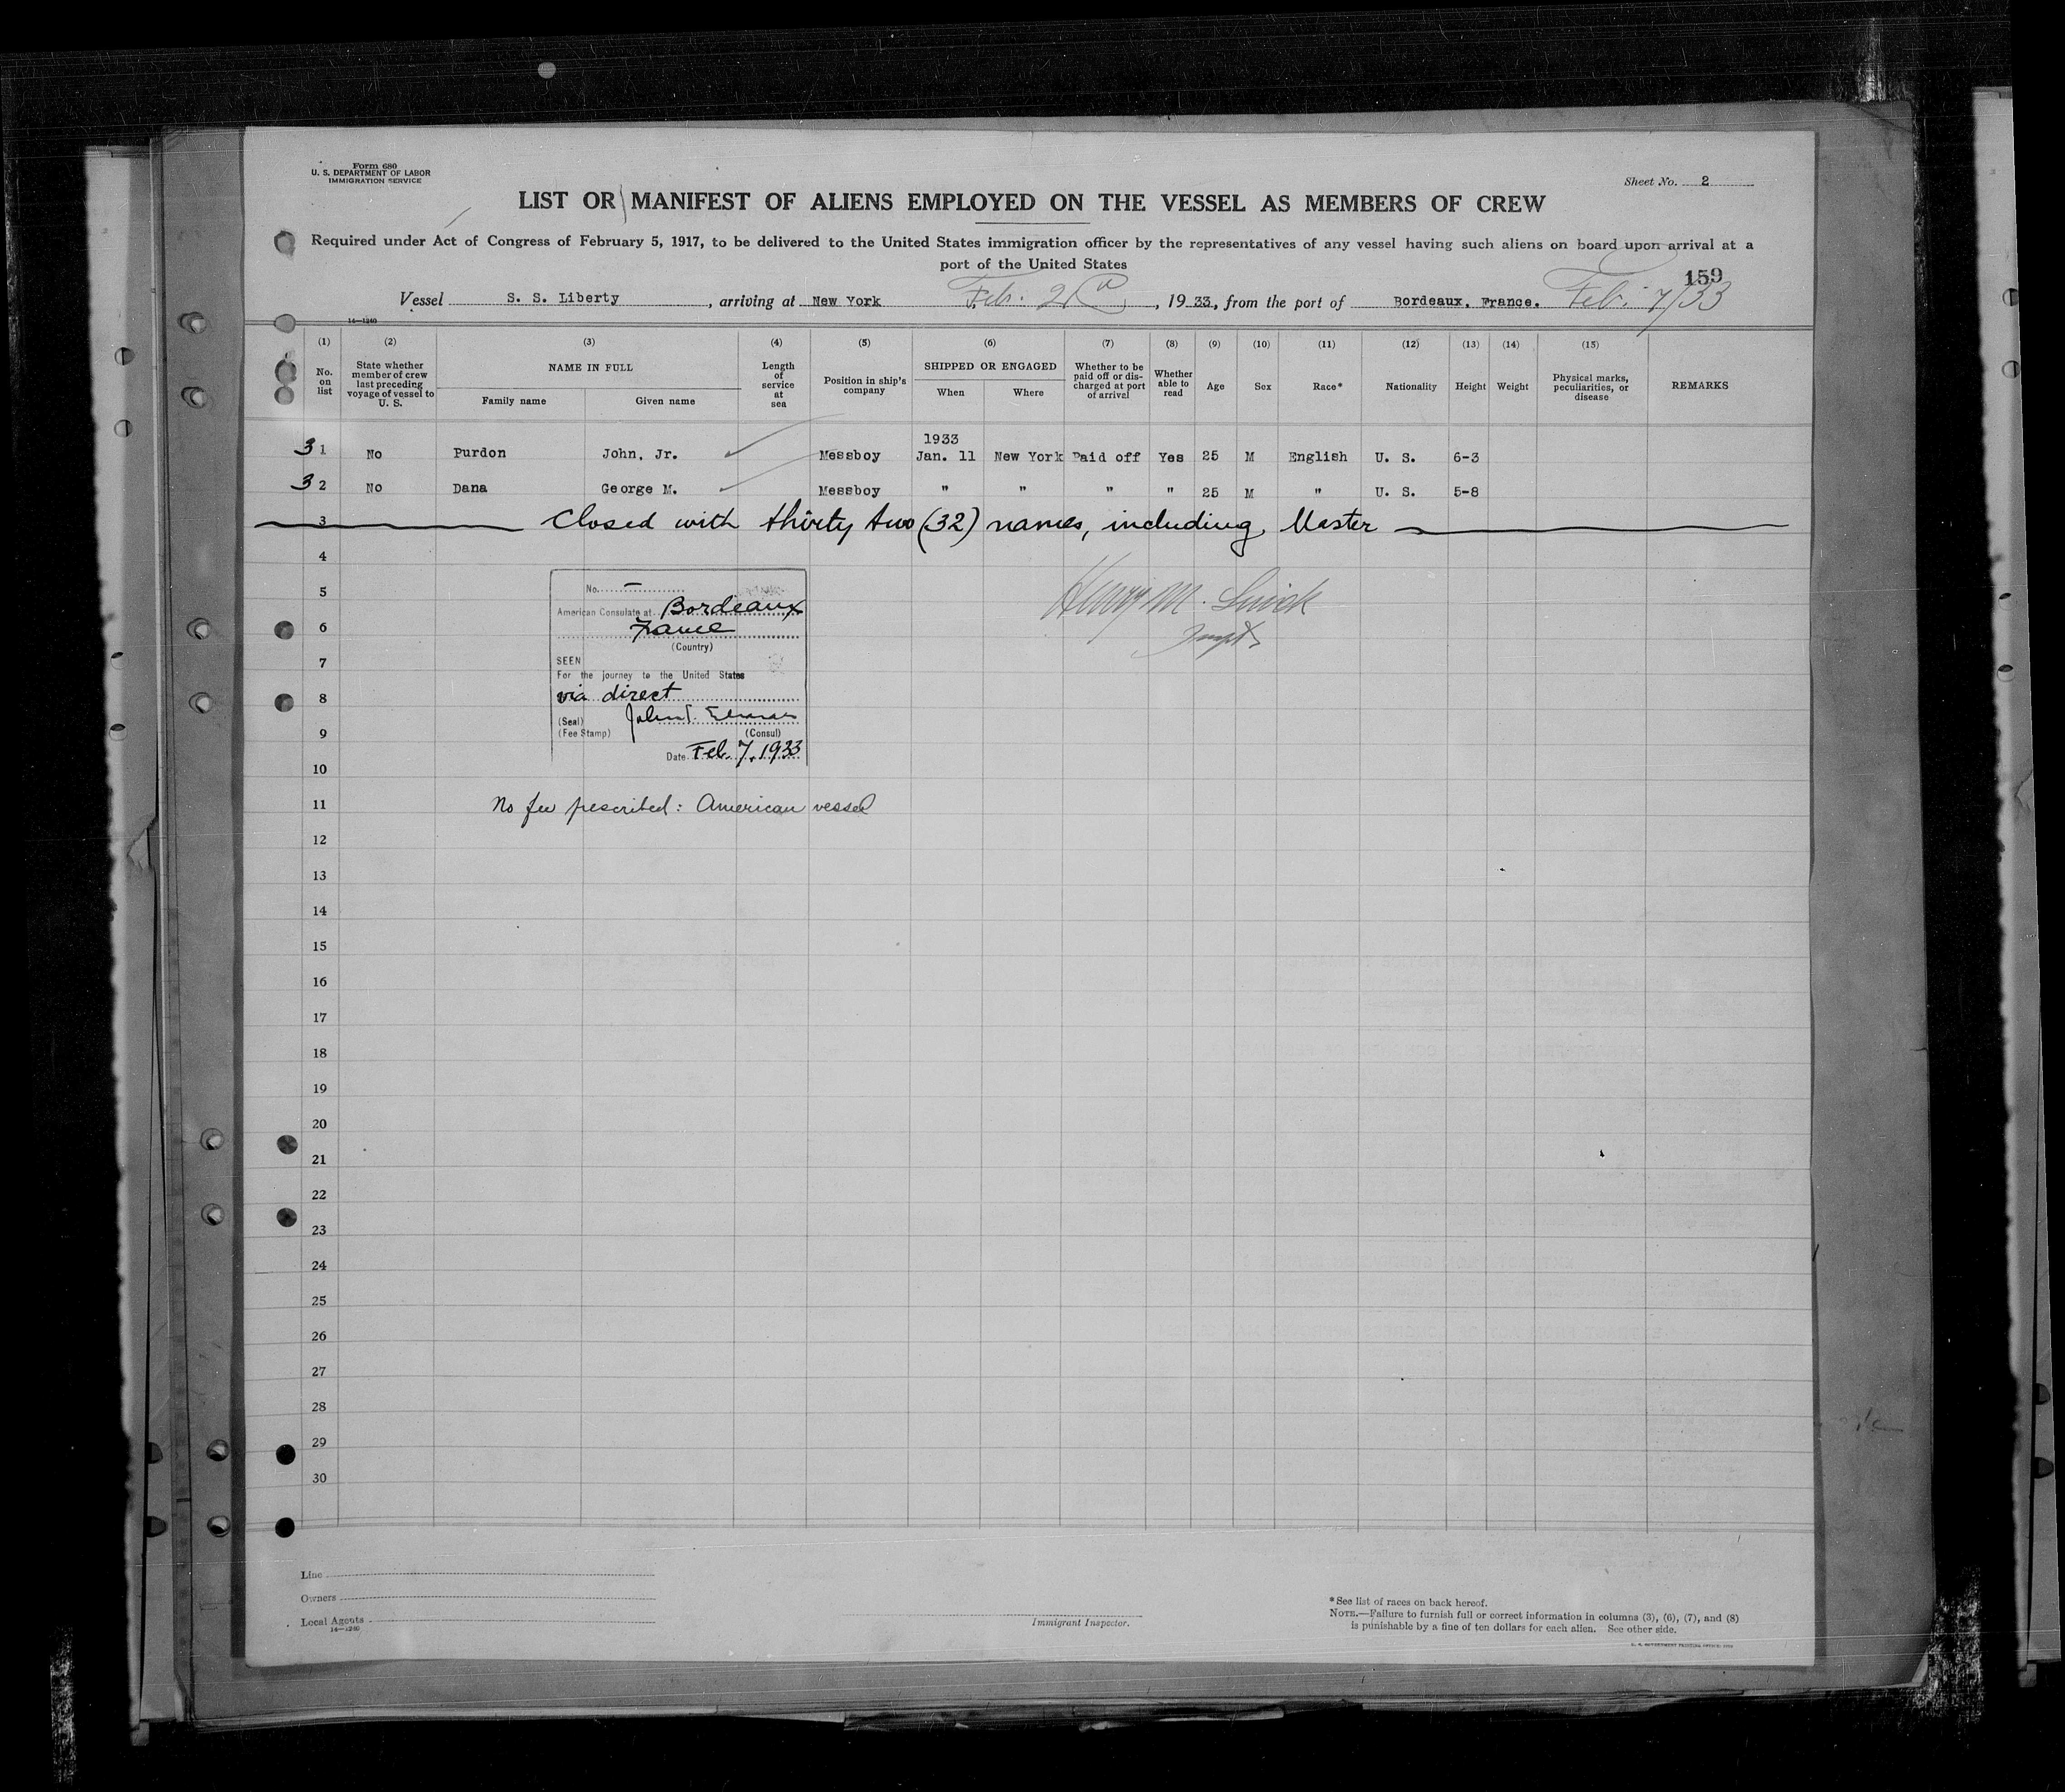 Form 680
U. S. DEPARTMENT OF LABOR
IMMIGRATION SERVICE
Sheet No. 2
LIST OR MANIFEST OF ALIENS EMPLOYED ON THE VESSEL AS MEMBERS OF CREW
Required under Act of Congress of February 5, 1917, to be delivered to the United States immigration officer by the representatives of any vessel having such aliens on board upon arrival at a
port of the United States
159
Vessel S. S. Liberty, arriving at New York Feb. 2, 1933, from the port of Bordeaux, France. Feb. 7/33
14—1240
(1) (2) (3) (4) (5) (6) (7) (8) (9) (10) (11) (12) (13) (14) (15)
No. on list State whether member of crew last preceding voyage of vessel to U. S. NAME IN FULL Family name Given name Length of service at sea Position in ship's company SHIPPED OR ENGAGED When Where Whether to be paid off or discharged at port of arrival Whether able to read Age Sex Race* Nationality Height Weight Physical marks, peculiarities, or disease REMARKS
1933
31 No Purdon John, Jr. Messboy Jan. 11 New York Paid off Yes 25 M English U. S. 6-3
32 No Dana George M. Messboy " " " " 25 M " U. S. 5-8
3 Closed with thirty two (32) names, including Master
4
5
6
7
8
9
10
No.
American Consulate at Bordeaux
France
(Country)
SEEN
For the journey to the United States
via direct
(Seal) John
(Fee Stamp) (Consul)
Date Feb. 7, 1933
Henry M.
11 No fee prescribed: American vessel
12
13
14
15
16
17
18
19
20
21
22
23
24
25
26
27
28
29
30
Line
Owners
Local Agents
14—1240
Immigrant Inspector.
*See list of races on back hereof.
NOTE.—Failure to furnish full or correct information in columns (3), (6), (7), and (8)
is punishable by a fine of ten dollars for each alien. See other side.